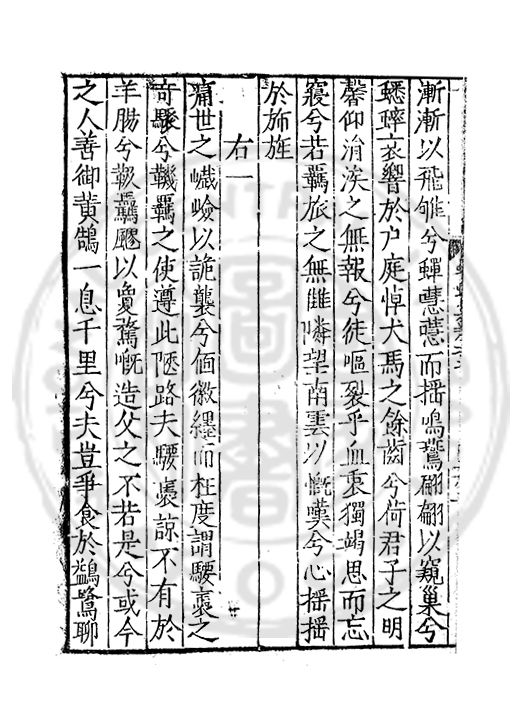 漸漸以飛雊兮蟬嘒嘒而揺鳴鷰翩翩以窺巢兮
蟋蟀哀響於户庭悼犬馬之餘齒兮荷君子之明
馨仰涓涘之無報兮徒嘔裂乎血衷獨竭思而忘
寢兮若羈旅之無讎隣望南雲以慨嘆兮心揺揺
於斾旌
右一
痛世之巇嶮以詭襲兮偭徽纆而枉度謂騕褭之
奇駿兮鞿羈之使遵此陋路夫騕褭諒不有於
羊腸兮羈飃以奐騖慨造父之不若是兮或今
之人善御黄鵠一息千里兮夫豈爭食於鷀鷺聊